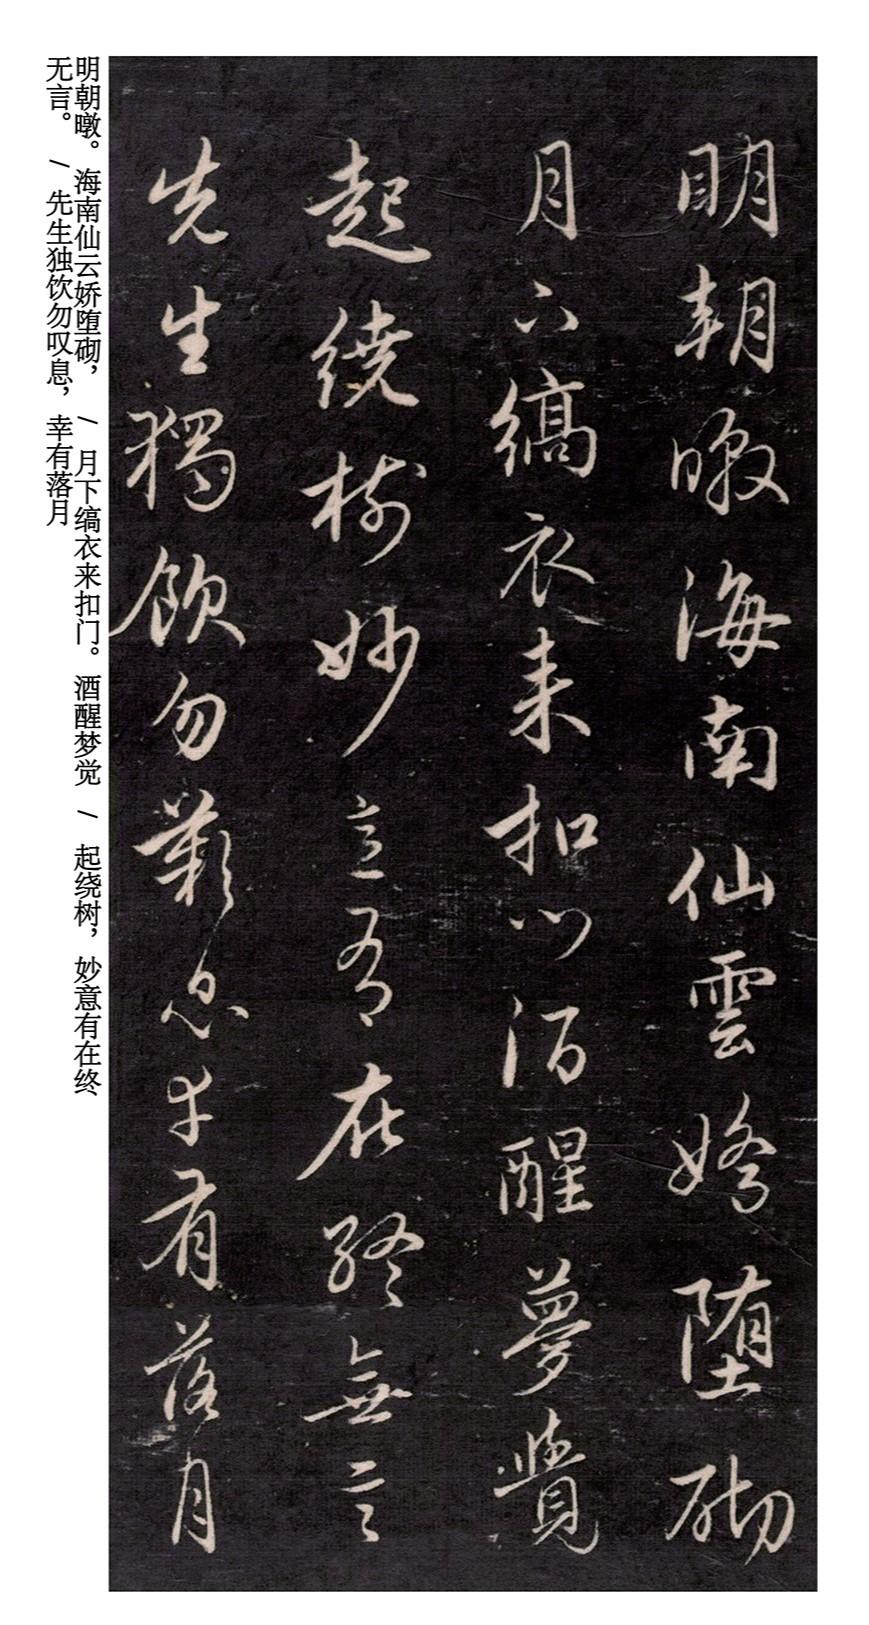 明朝暾海南仙雲嬌堕砌
月下縞衣来扣门酒醒夢覺
起繞樹妙意有在終無言
先生獨飲勿歎息幸有落月
明朝暾。海南仙云娇堕砌， / 月下缟衣来扣门。酒醒梦觉 / 起绕树，妙意有在终
无言。 / 先生独饮勿叹息，幸有落月